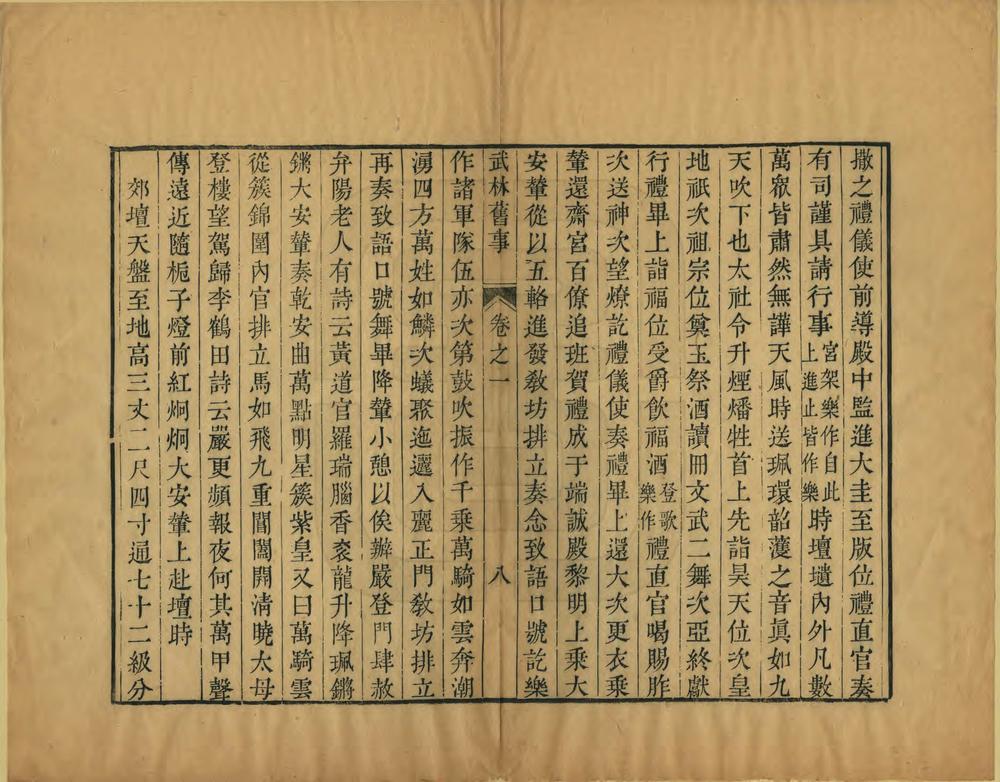 撒之禮儀使前導殿中監進大圭至版位禮直官奏
有司謹具請行事宮架樂作自此上進止皆作樂時壇壝內外凡數
萬衆皆肅然無譁天風時送珮環韶濩之音眞如九
天吹下也太社令升煙燔牲首上先詣昊天位次皇
地祇次祖宗位奠玉祭酒讀冊文武二舞次亞終獻
行禮畢上詣福位受爵飲福酒登歌樂作禮直官喝賜胙
次送神次望燎訖禮儀使奏禮畢上還大次更衣乘
輦還齋宮百僚追班賀禮成于端誠殿黎明上乘大
安輦從以五輅進發敎坊排立奏念致語口號訖樂
武林舊事 卷之一 八
作諸軍隊伍亦次第鼓吹振作千乘萬騎如雲奔潮
湧四方萬姓如鱗次蟻聚迤邐入麗正門敎坊排立
再奏致語口號舞畢降輦小憩以俟辦嚴登門肆赦
弁陽老人有詩云黃道宮羅瑞腦香袞龍升降珮鏘
鏘大安輦奏乾安曲萬點明星簇紫皇又曰萬騎雲
從簇錦圍內官排立馬如飛九重閶闔開淸曉太母
登樓望駕歸李鶴田詩云嚴更頻報夜何其萬甲聲
傳遠近隨梔子燈前紅炯炯大安輦上赴壇時
郊壇天盤至地高三丈二尺四寸通七十二級分